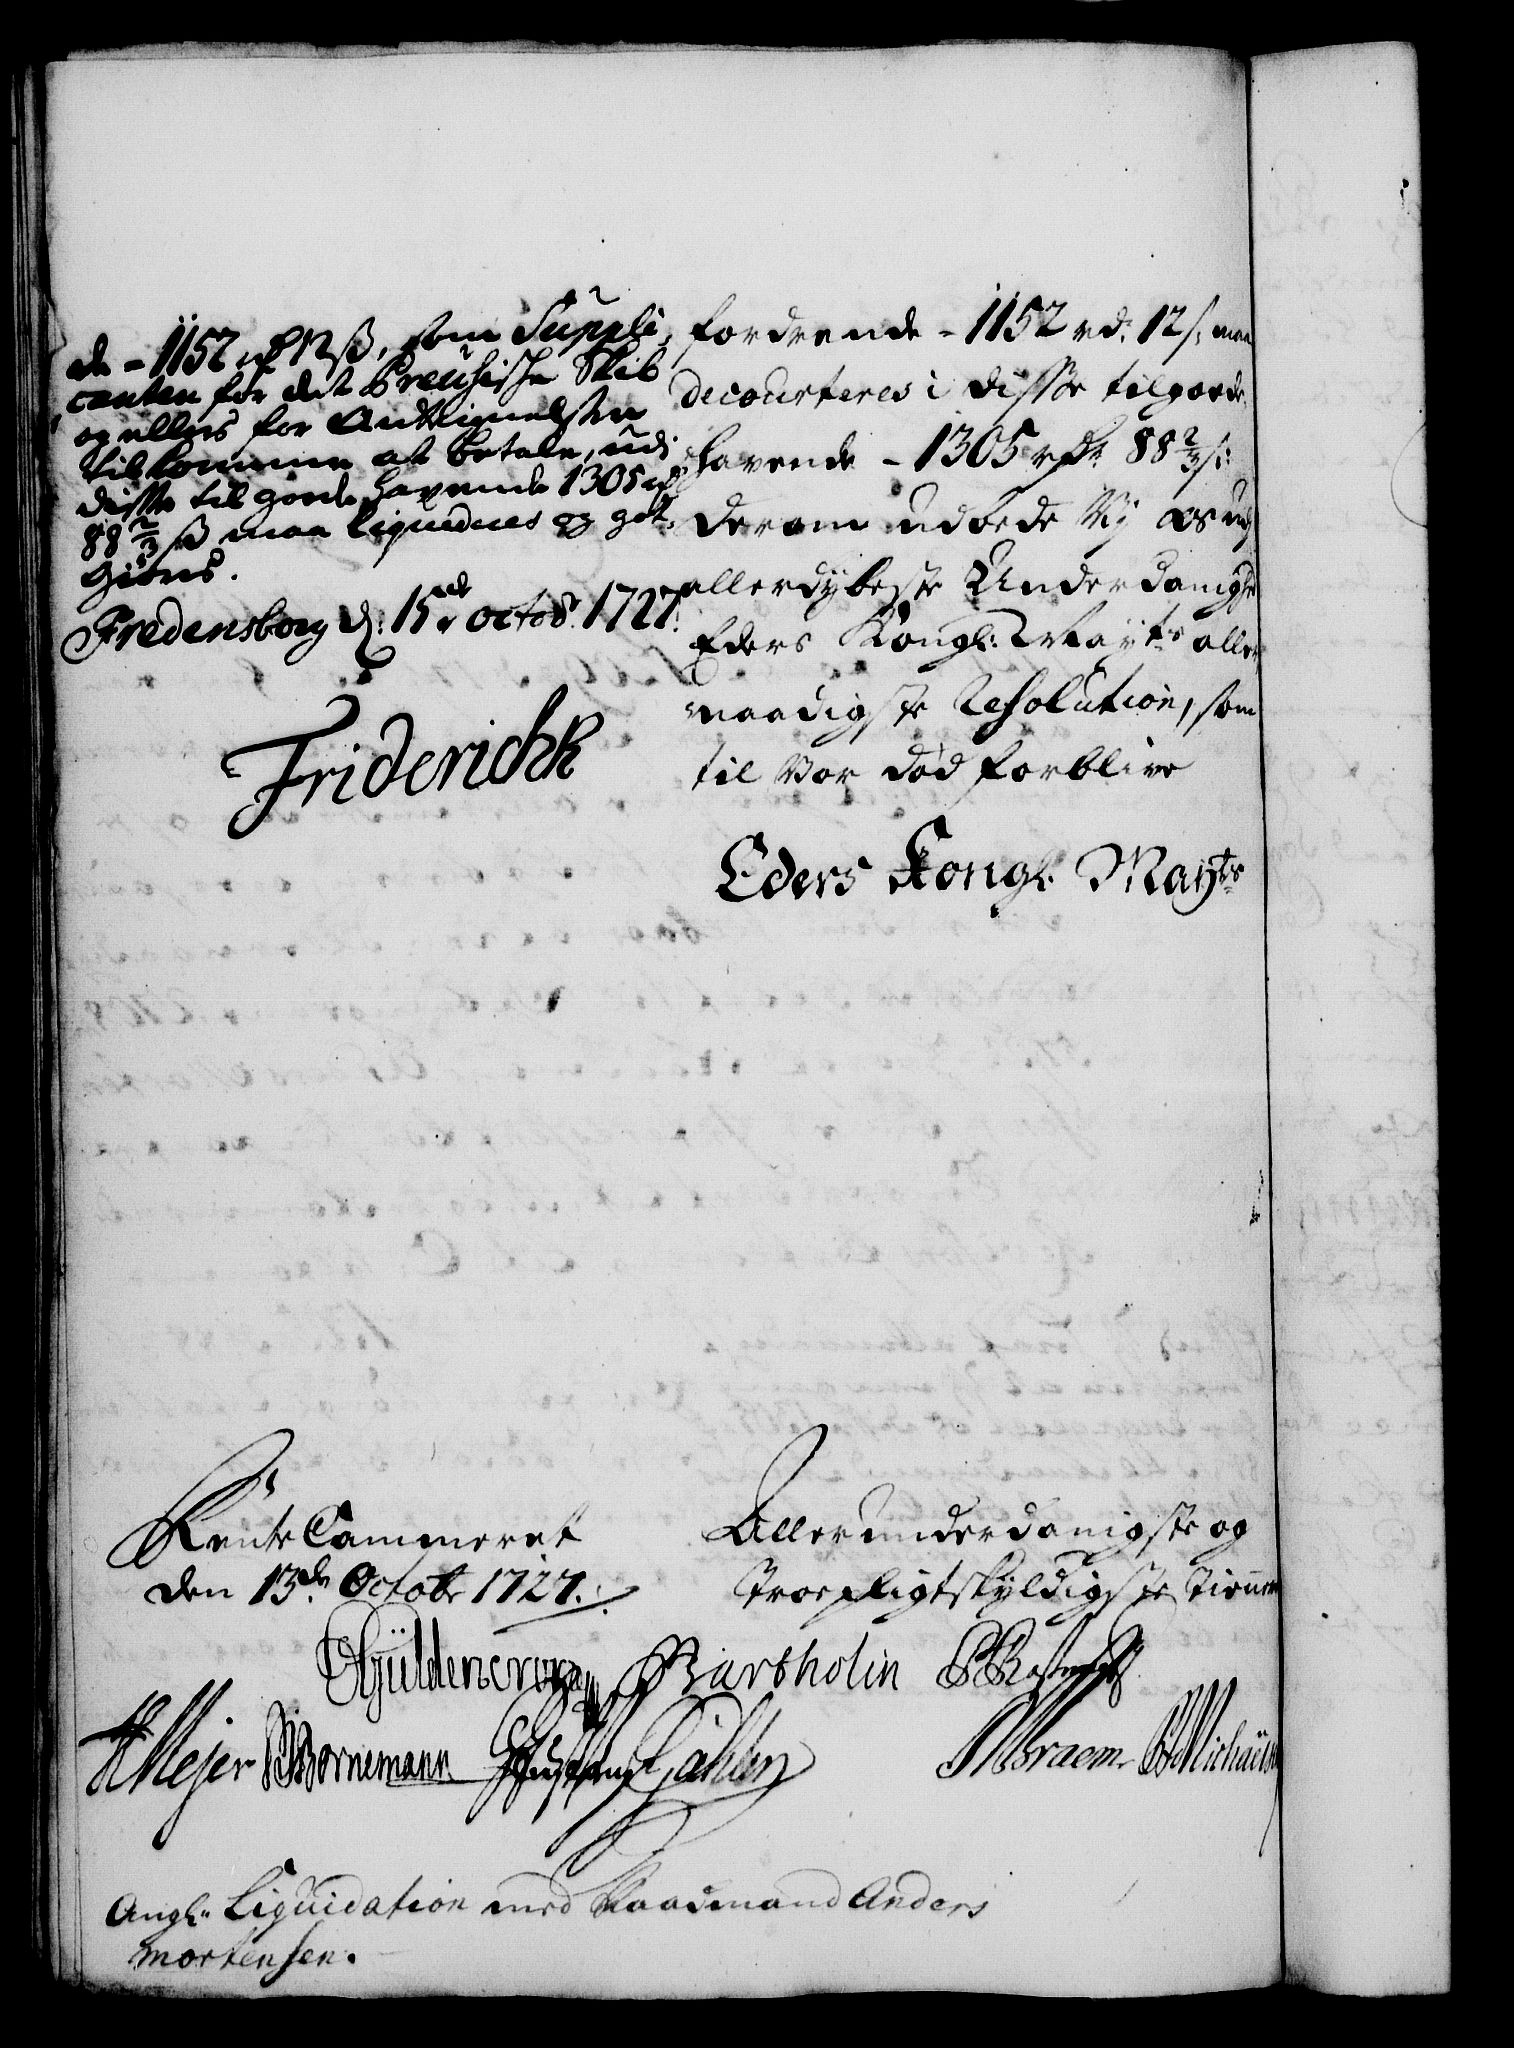 de - 1152 rd 12 ß, som Suppli-
canten for det Preusische Skib
og ellers for Antegnelsen
tilkomme at betale, udi
disse til gode havende 1305 rd
88 2/3 ß maa liqvideres og got-
giøres.
Fredensborg d: 15de octobr 1727.
Friderich R
fordrende - 1152 rd: 12 s: maa
decourteres i disse tilgode
havende - 1305 rd: 88 2/3 s:
derom udbede Vij os udj
allerdybeste Underdanighed
Eders Kongl: Mayts aller
naadigste Resolution, som
til Vor død forblive
Eders Kongl: Mayts
Rente Cammeret
den 13de Octobr 1727.
Allerunderdanigste og
Troepligtskyldigste Tienere
Güldencrone Bartholin
H Mejer Bornemann Gähler Braem Michaelsen
Angl: Liquidation med Raadmand Anders
Mortensen.